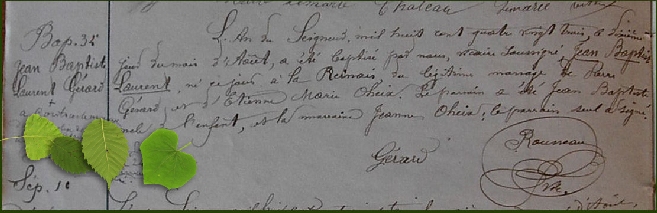 Chateau
Bap. 35 L'An du Seigneur, mil huit cent quatre vingt trois, le dixième
Jean Baptist jour du mois d'Août, a été baptisé par nous, vicaire soussigné, Jean Baptist
Laurent Gérard Laurent, né ce jour à la Remais, du légitime mariage de Pierre
Gérard, et d'Etienne Marie Oheix. Le parrain a été Jean Baptist
l'enfant, et la marraine Jeanne Oheix, le parrain seul a signé.
Rouneau
Gérard
Sép. 1
d'Août,